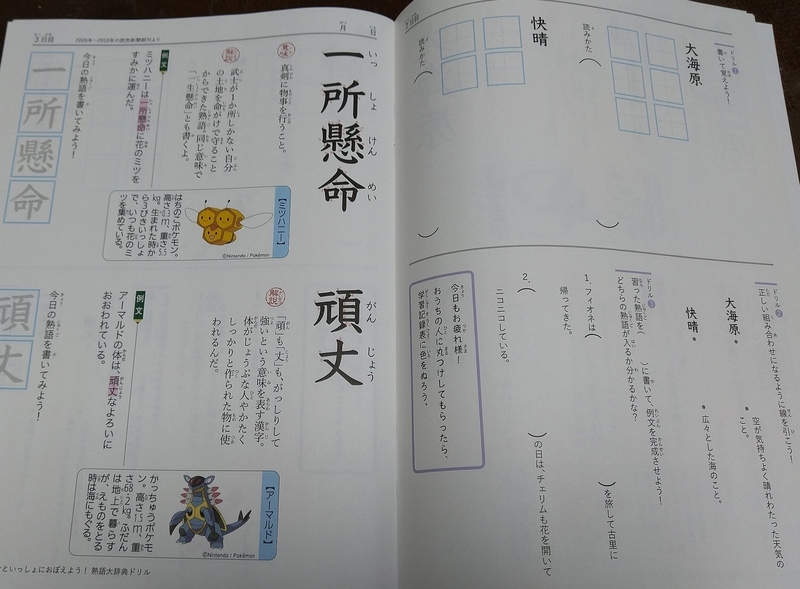 ドリル①
書いて覚えよう！
大海原
読みかた（　）
快晴
読みかた（　）
ドリル②
正しい組み合わせになるように線を引こう！
大海原・
快晴・
・空が気持ちよく晴れわたった天気の
こと。
・広々とした海のこと。
ドリル③
習った熟語を（　）に書いて、例文を完成させよう！
どちらの熟語が入るか分かるかな？
1. フィオネは（　）を旅して古里に
帰ってきた。
2.（　）の日は、チェリムも花を開いて
ニコニコしている。
今日もお疲れ様！
おうちの人に丸つけしてもらったら、
学習記録表に色をぬろう。
3日目
2009年〜2010年の読売新聞朝刊より
月　日
一所懸命
いっしょけんめい
意味
真剣に物事を行うこと。
解説
武士が1か所しかない自分
の土地を命がけで守ること
からできた熟語。同じ意味で
「一生懸命」とも書くよ。
例文
ミツハニーは一所懸命に花のミツを
すみかに運んだ。
今日の熟語を書いてみよう！
一所懸命
【ミツハニー】
©Nintendo / Pokémon
はちのこポケモン。
高さ0.3m、重さ5.5
kg。生まれた時か
ら3びきいっしょ
で、いつも花のミ
ツを集めている。
頑丈
がんじょう
解説
「頑」も「丈」も、がっしりして
強いという意味を表す漢字。
体がじょうぶな人やかたく
しっかりと作られた物に使
われるんだ。
例文
アーマルドの体は、頑丈なよろいに
おおわれている。
今日の熟語を書いてみよう！
頑丈
【アーマルド】
©Nintendo / Pokémon
かっちゅうポケモ
ン。高さ1.5m、重
さ68.2kg。ふだん
は地上で暮らす
が、えものをとる
時は海にもぐる。
といっしょにおぼえよう！ 熟語大辞典ドリル